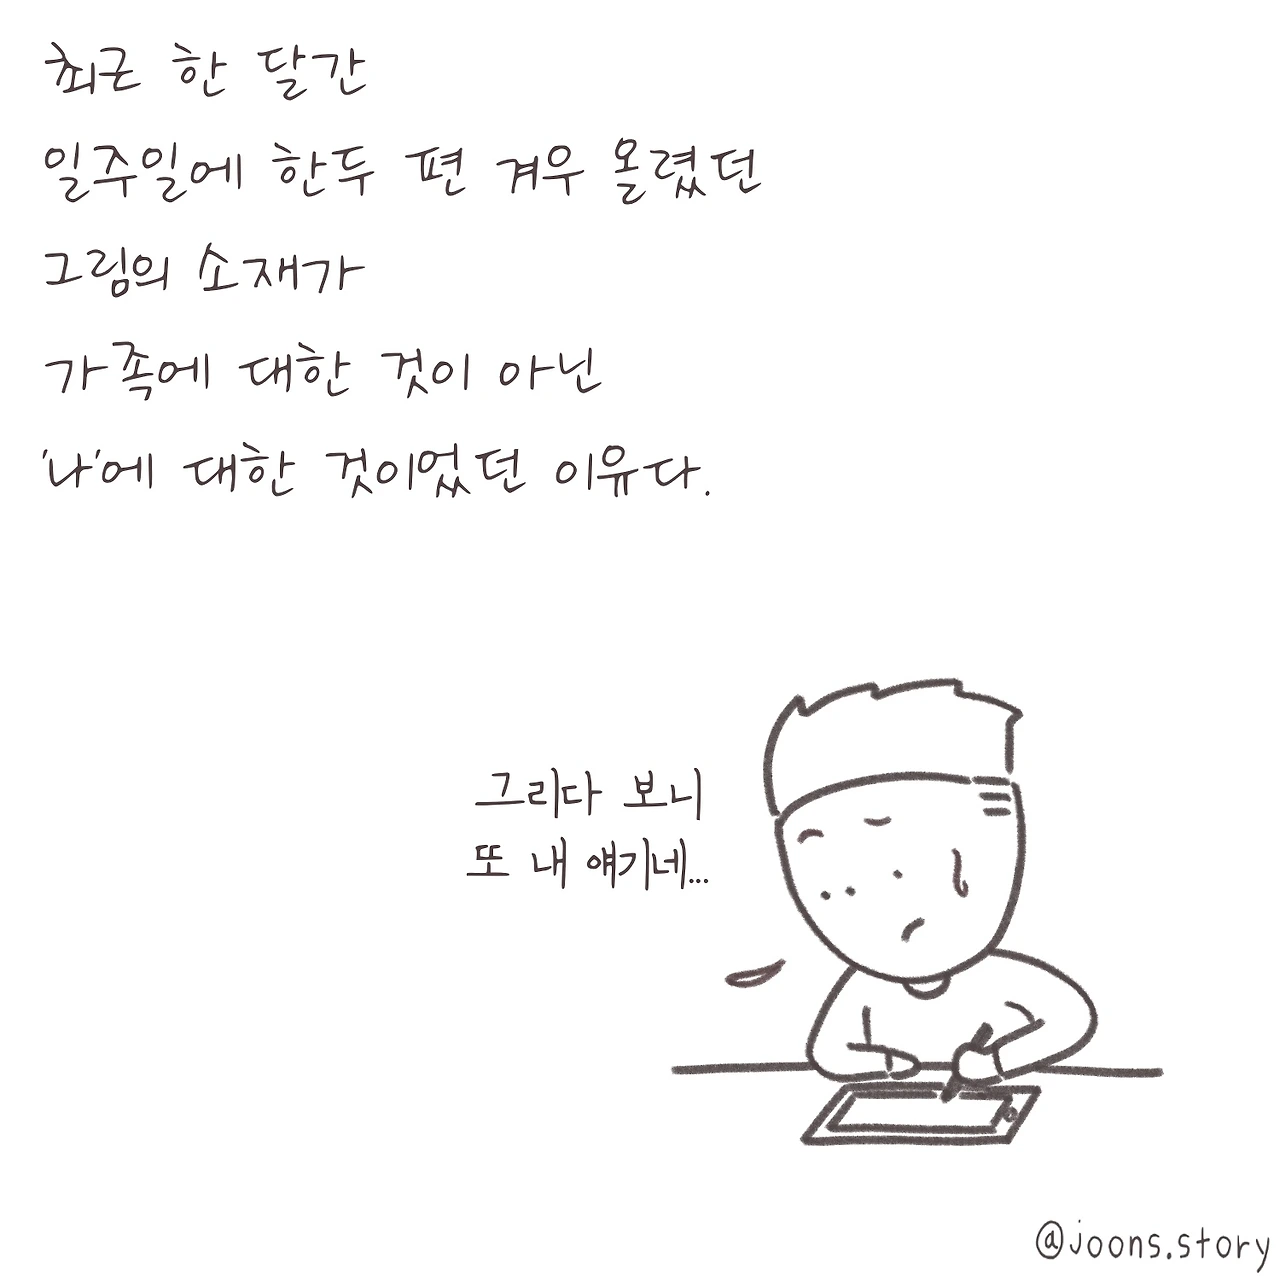 최근 한 달간
일주일에 한두 편 겨우 올렸던
그림의 소재가
가족에 대한 것이 아닌
'나'에 대한 것이었던 이유다.
그리다 보니
또 내 얘기네...
@joons.story